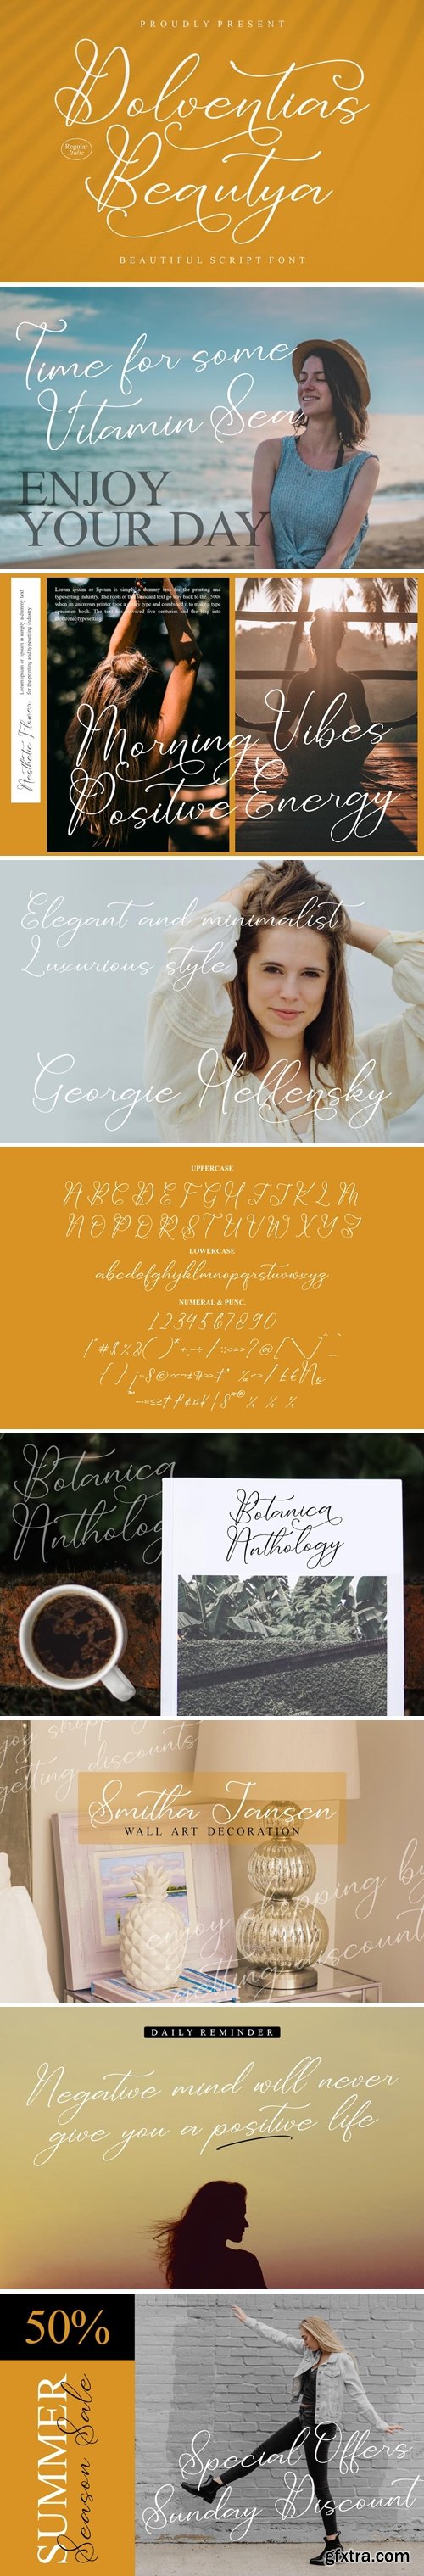 PROUDLY PRESENT
Dolventias
Regular
Italic
Beautya
BEAUTIFUL SCRIPT FONT
Time for some
Vitamin Sea
ENJOY
YOUR DAY
Aesthetic Flower
Lorem ipsum or lipsum is simply a dummy text
for the printing and typesetting industry.
Lorem ipsum or lipsum is simply a dummy text for the printing and
typesetting industry. The roots of the standard text go way back to the 1500s
when an unknown printer took a type and combined it to make a type
specimen book. The text has survived five centuries and the leap into
electronic typesetting.
Morning Vibes
Positive Energy
Elegant and minimalist
Luxurious style
Georgie Hellensky
UPPERCASE
A B C D E F G H I J K L M
N O P Q R S T U V W X Y Z
LOWERCASE
abcdefghijklmnopqrstuvwxyz
NUMERAL & PUNC.
1 2 3 4 5 6 7 8 9 0
Botanica
Anthology
Botanica
Anthology
enjoy shopping
getting discounts
Smitha Jansen
WALL ART DECORATION
enjoy shopping by
getting discount
DAILY REMINDER
Negative mind will never
give you a positive life
50%
SUMMER
Season Sale
Special Offers
Sunday Discount
gfxtra.com